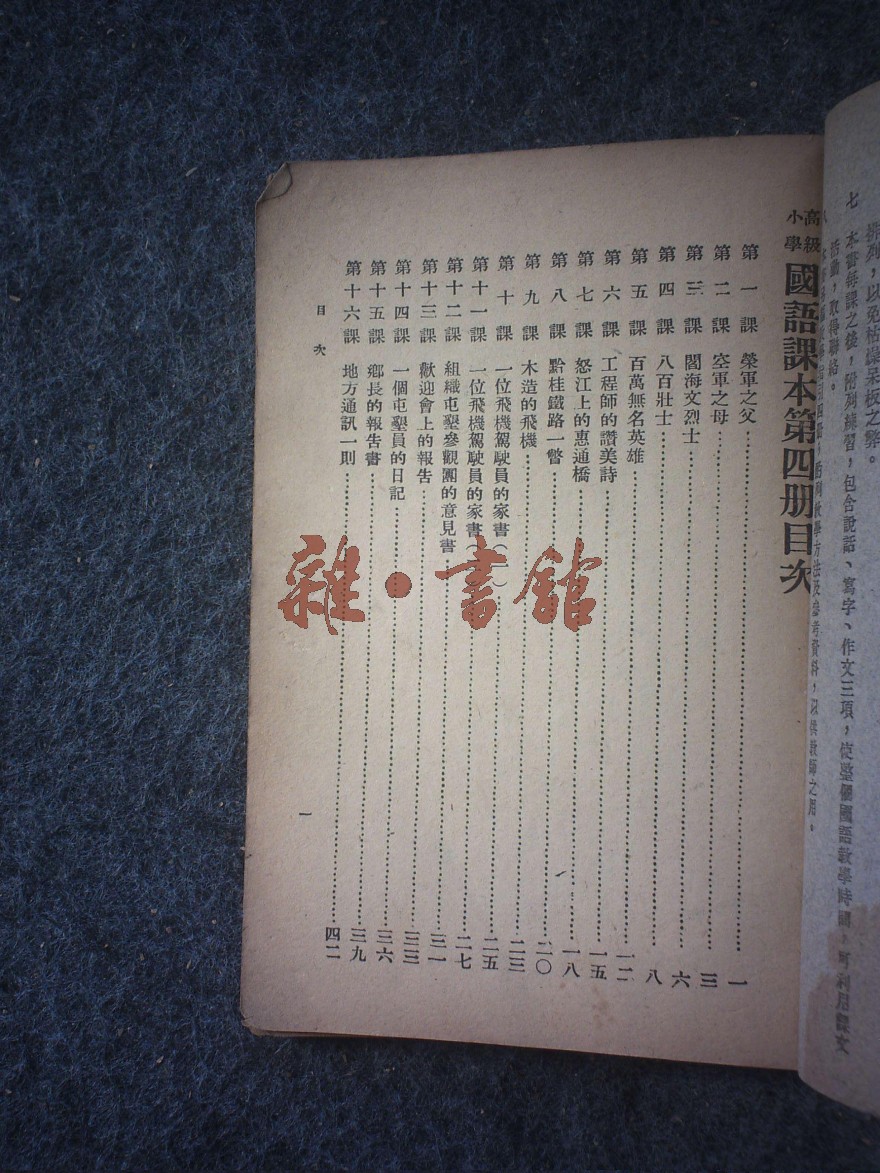 排列，以免枯燥呆板之弊。
七　本書每課之後，附列練習，包含說話、寫字、作文三項，使整個國語教學時間，可利用課文
活動，取得聯絡。
教學方法及參考資料，以供教師之用。
高級小學 國語課本第四册目次
第一課　榮軍之父…一
第二課　空軍之母…三
第三課　閻海文烈士…六
第四課　八百壯士…八
第五課　百萬無名英雄…一二
第六課　工程師的讚美詩…一五
第七課　怒江上的惠通橋…一八
第八課　黔桂鐵路一瞥…二〇
第九課　木造的飛機…二三
第十課　一位飛機駕駛員的家書…二五
第十一課　一位飛機駕駛員的家書…二七
第十二課　組織屯墾參觀團的意見書…三一
第十三課　歡迎會上的報告…三三
第十四課　一個屯墾員的日記…三六
第十五課　鄉長的報告書…三九
第十六課　地方通訊一則…四二
目次
一
雜·書館